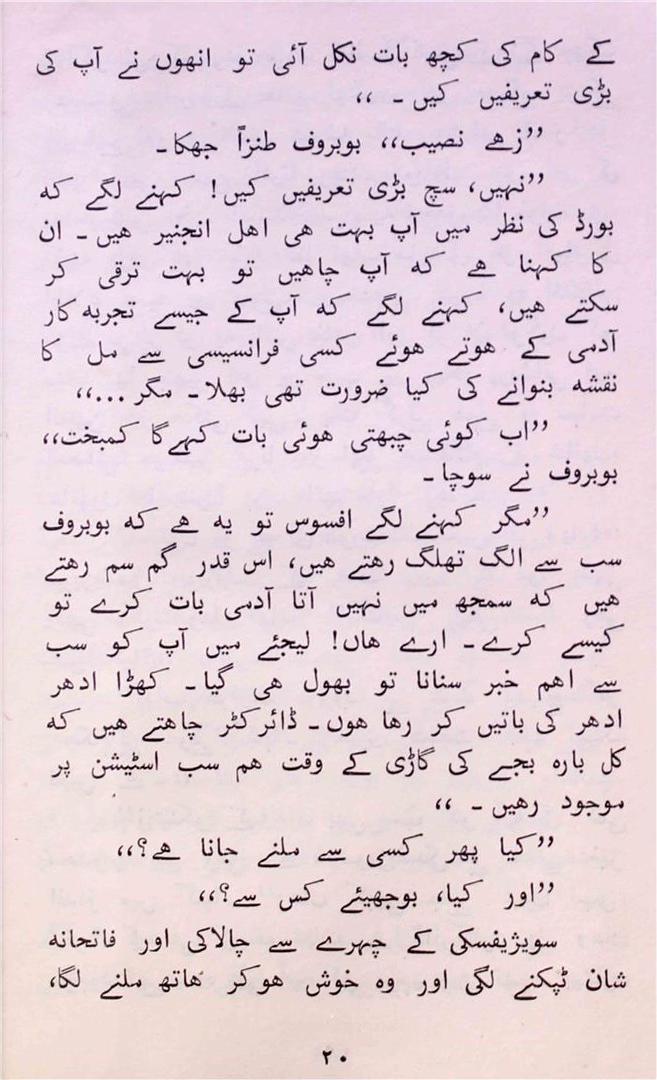 کے کام کی کچھ بات نکل آئی تو انھوں نے آپ کی
بڑی تعریفیں کیں۔ ،،
”زھے نصیب،، بوبروف طنزاً جھکا۔
”نہیں، سچ بڑی تعریفیں کیں! کہنے لگے کہ
بورڈ کی نظر میں آپ بہت ھی اھل انجنیر ھیں۔ ان
کا کہنا ھے کہ آپ چاھیں تو بہت ترقی کر
سکتے ھیں، کہنے لگے کہ آپ کے جیسے تجربہ کار
آدمی کے ھوتے ھوئے کسی فرانسیسی سے مل کا
نقشہ بنوانے کی کیا ضرورت تھی بھلا۔ مگر...،،
”اب کوئی چبھتی ھوئی بات کہے گا کمبخت،،
بوبروف نے سوچا۔
”مگر کہنے لگے افسوس تو یہ ھے کہ بوبروف
سب سے الگ تھلگ رھتے ھیں، اس قدر گم سم رھتے
ھیں کہ سمجھ میں نہیں آتا آدمی بات کرے تو
کیسے کرے۔ ارے ھاں! لیجئے میں آپ کو سب
سے اھم خبر سنانا تو بھول ھی گیا۔ کھڑا ادھر
ادھر کی باتیں کر رھا ھوں۔ ڈائرکٹر چاھتے ھیں کہ
کل بارہ بجے کی گاڑی کے وقت ھم سب اسٹیشن پر
موجود رھیں۔ ،،
”کیا پھر کسی سے ملنے جانا ھے؟،،
”اور کیا، بوجھیئے کس سے؟،،
سویژیفسکی کے چہرے سے چالاکی اور فاتحانہ
شان ٹپکنے لگی اور وہ خوش ھوکر ھاتھ ملنے لگا،
۲۰